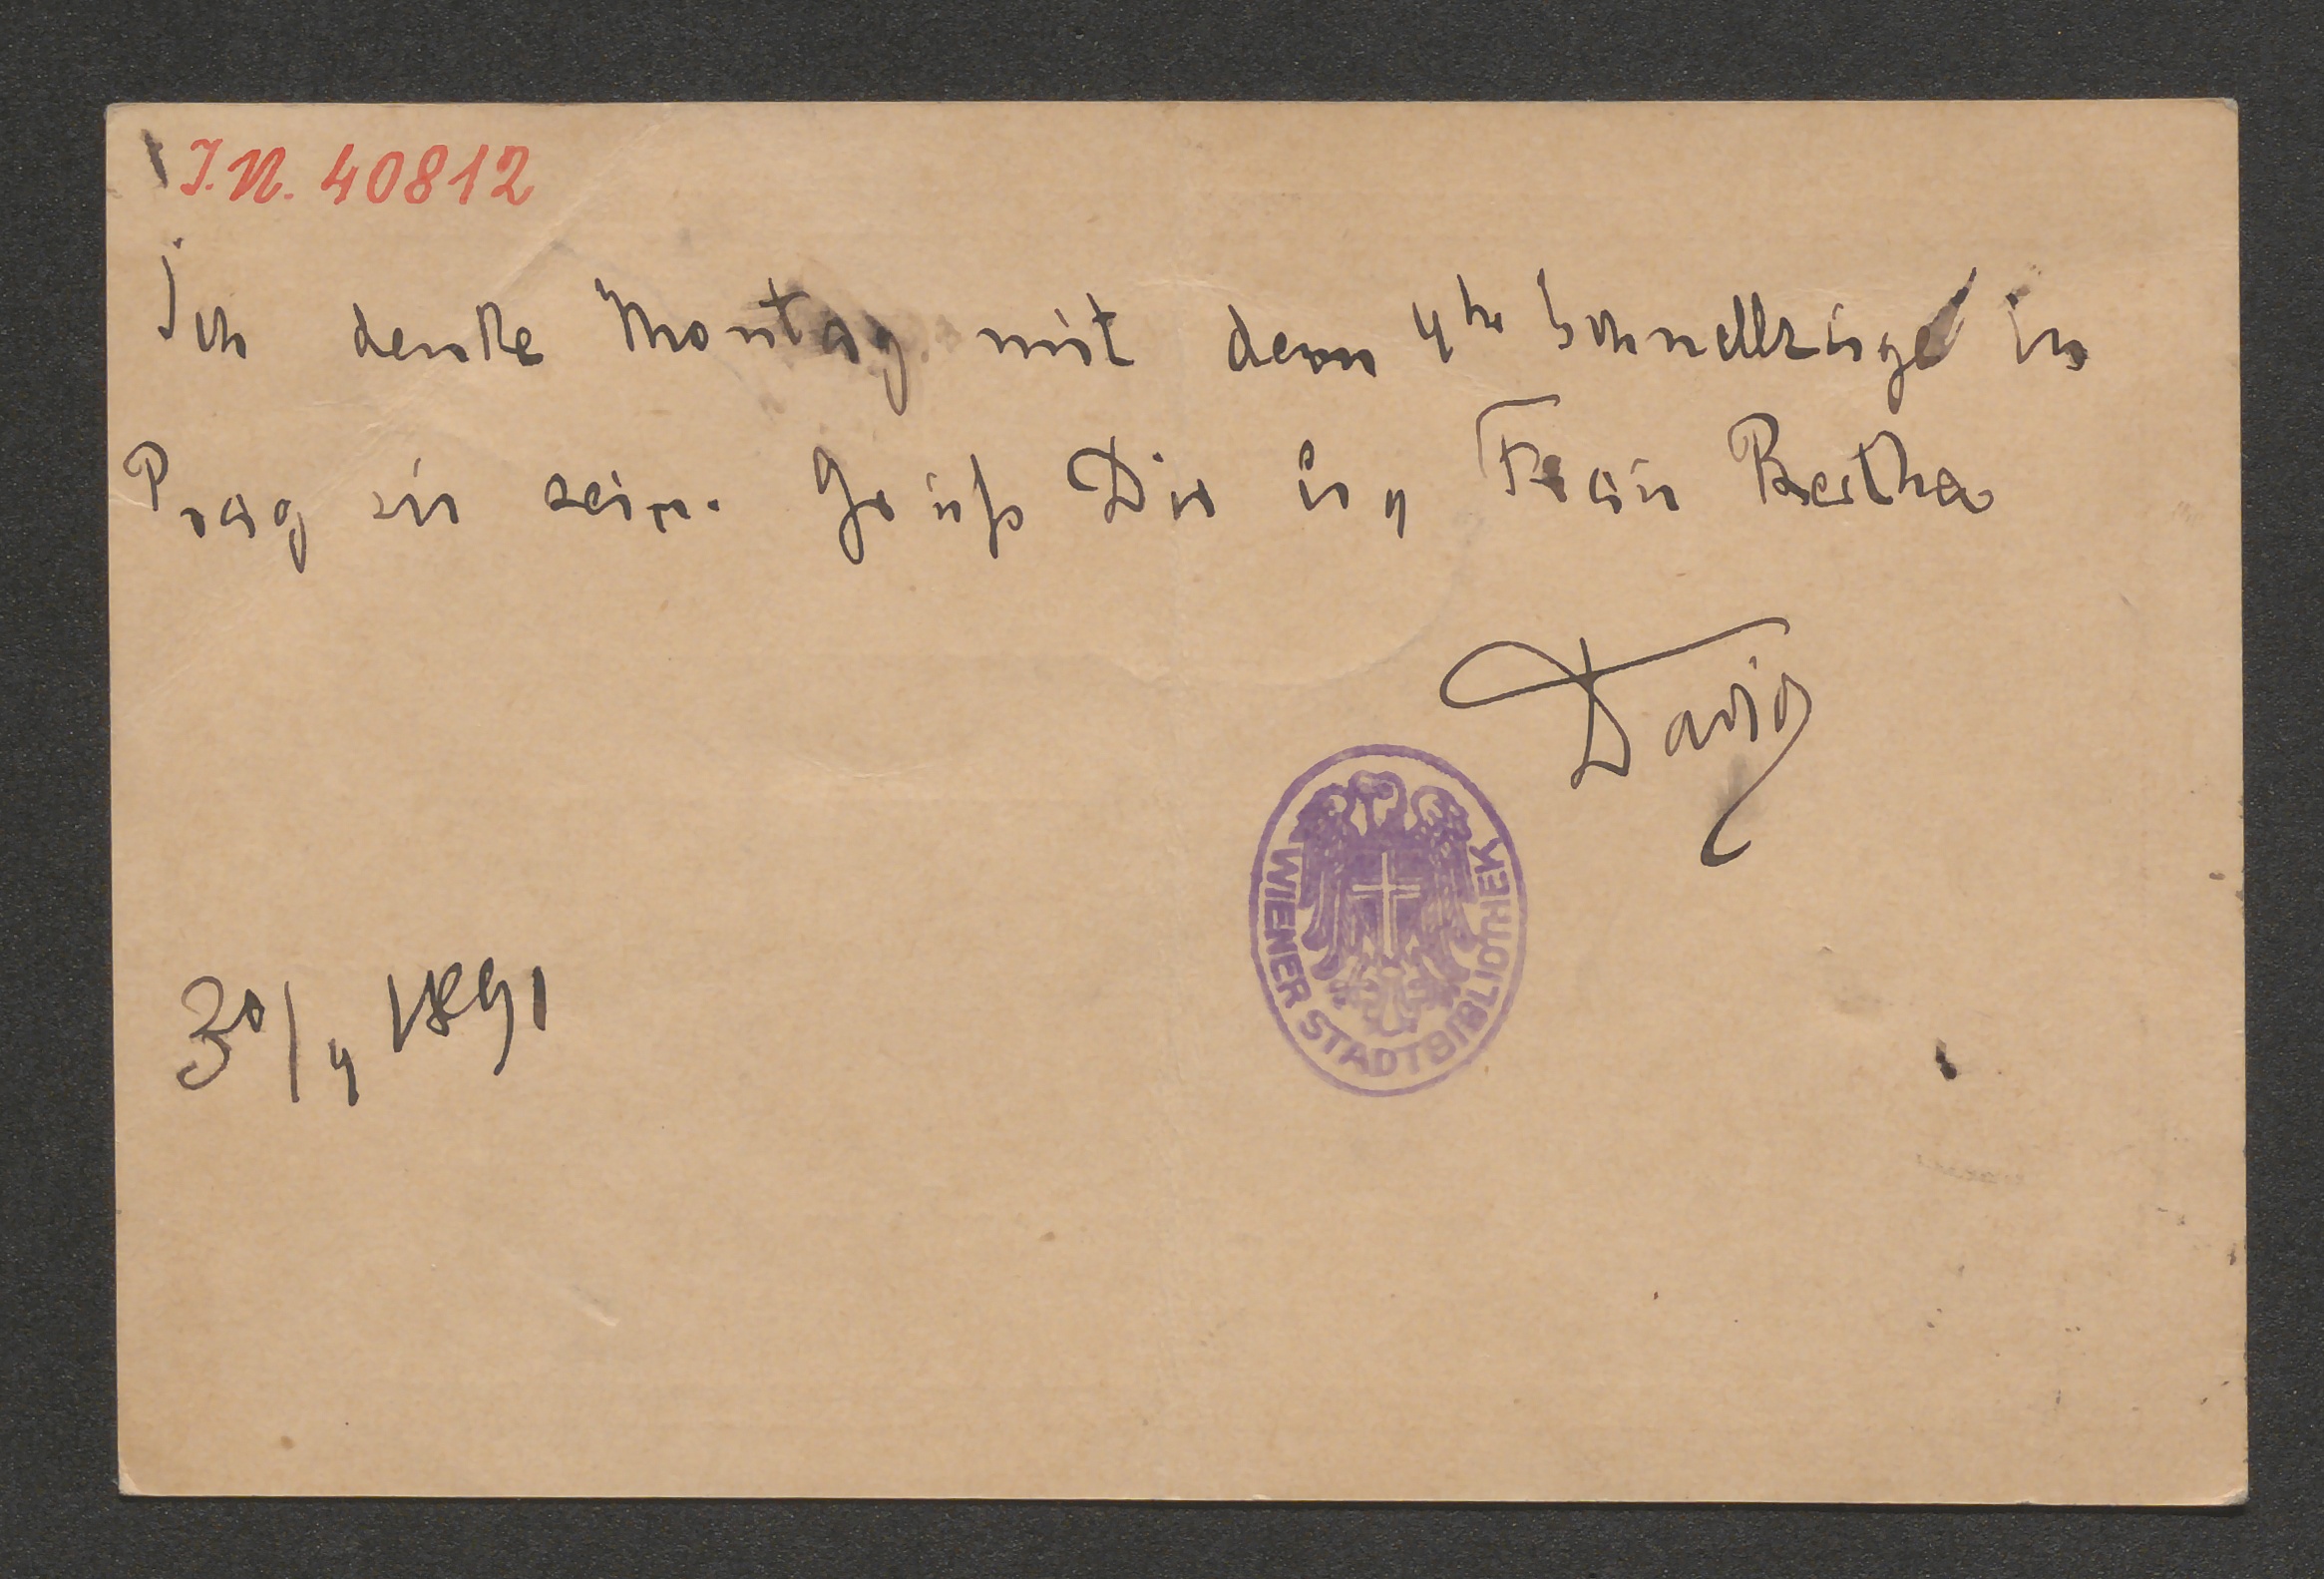 I.N. 40812
Ich denke Montag mit dem 4h Schnellzuge in
Prag zu sein. Gruß Dir u. Frau Bertha
David
WIENER STADTBIBLIOTHEK
30/4 1891